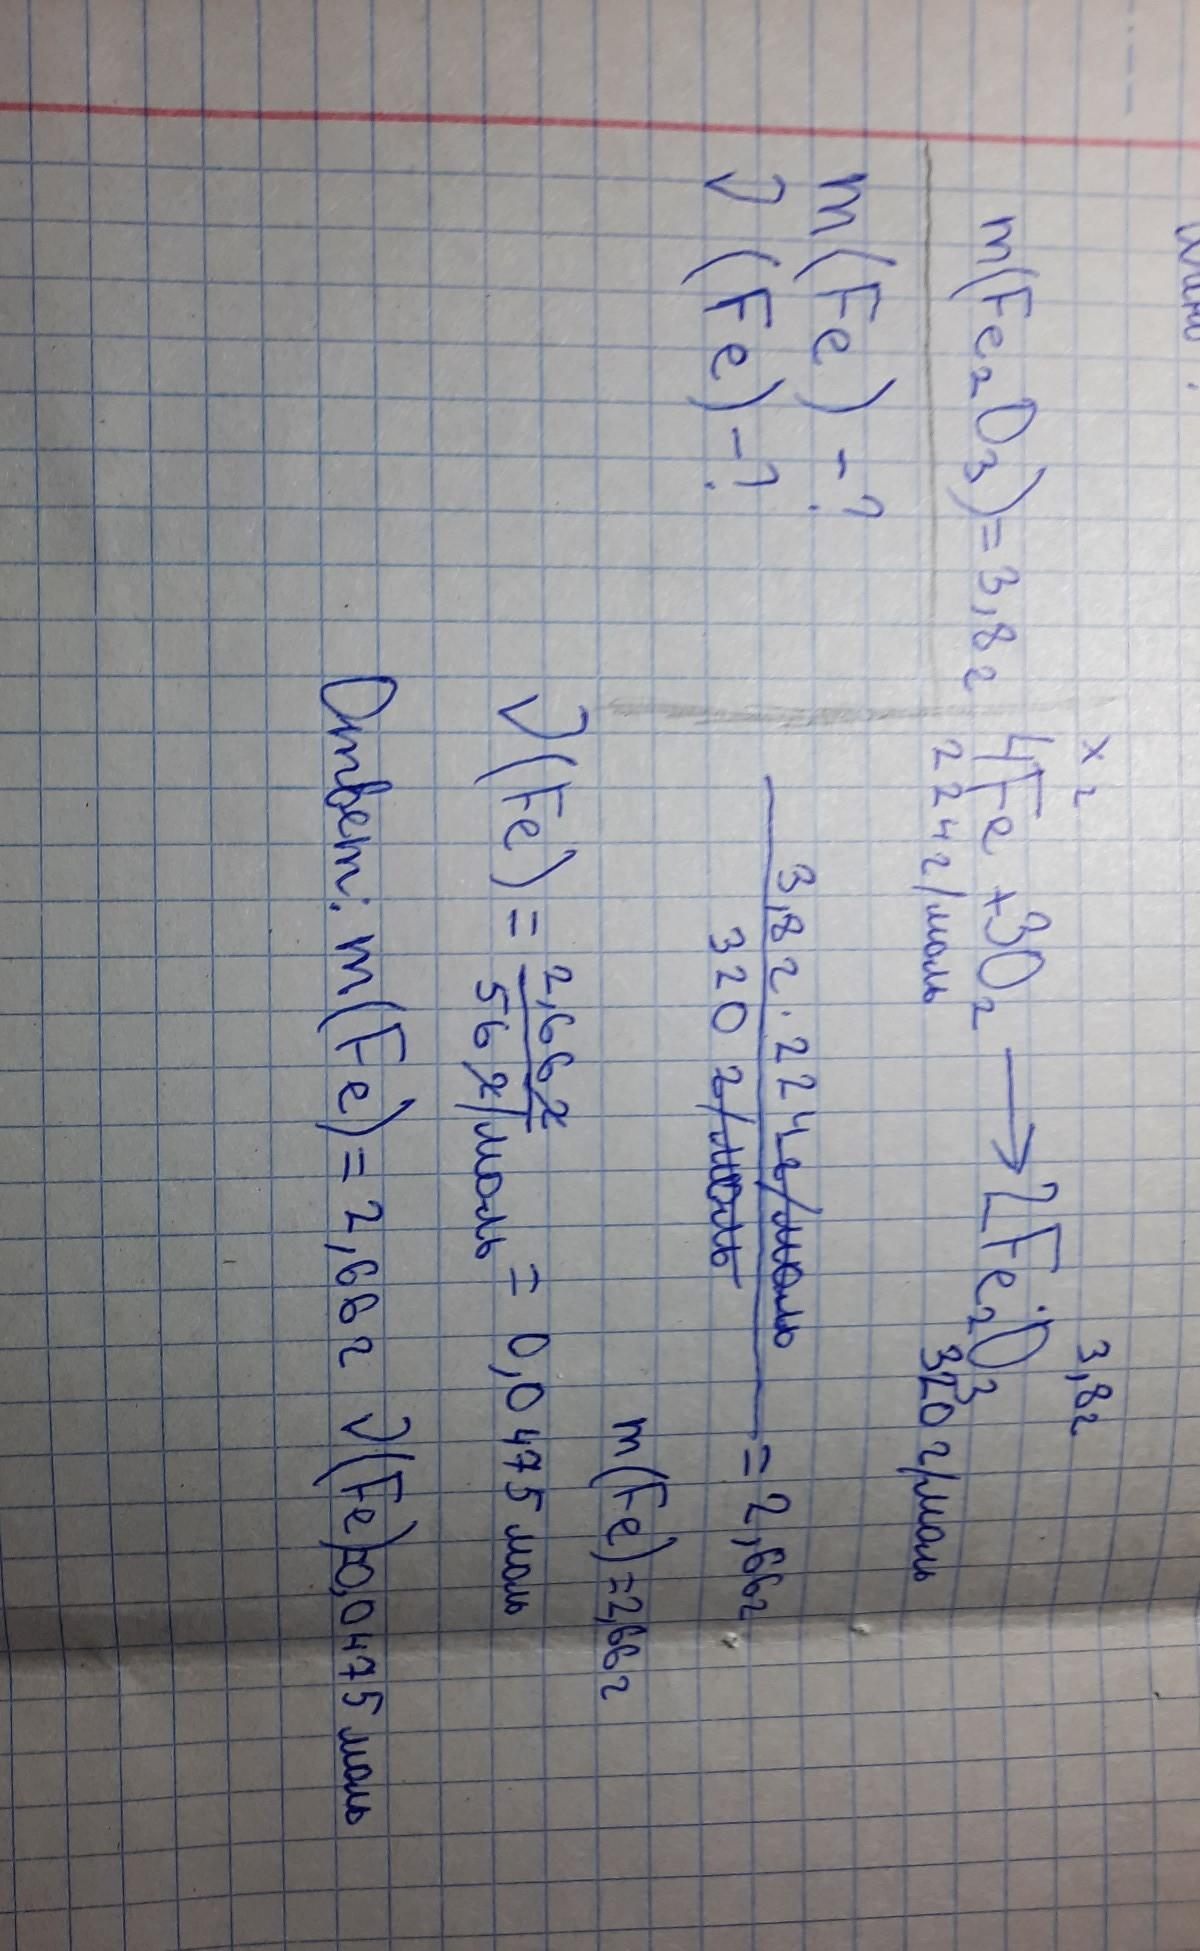 m(Fe₂O₃)=3,8г
m(Fe)-?
ν(Fe)-?
x г 3,8г
4Fe + 3O₂ → 2Fe₂O₃
224г/моль 320г/моль
3,8г · 224г/моль / 320г/моль = 2,66г
m(Fe)=2,66г
ν(Fe) = 2,66г / 56г/моль = 0,0475 моль
Ответ: m(Fe)=2,66г ν(Fe)=0,0475 моль